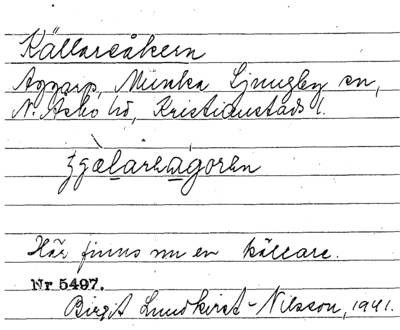 Källareåkern
Aggarp, Munka Ljungby sn,
N. Åsbo hd, Kristianstads l.
Här finns nu en källare.
Nr 5497.
Birgit Lundkvist-Nilsson, 1941.